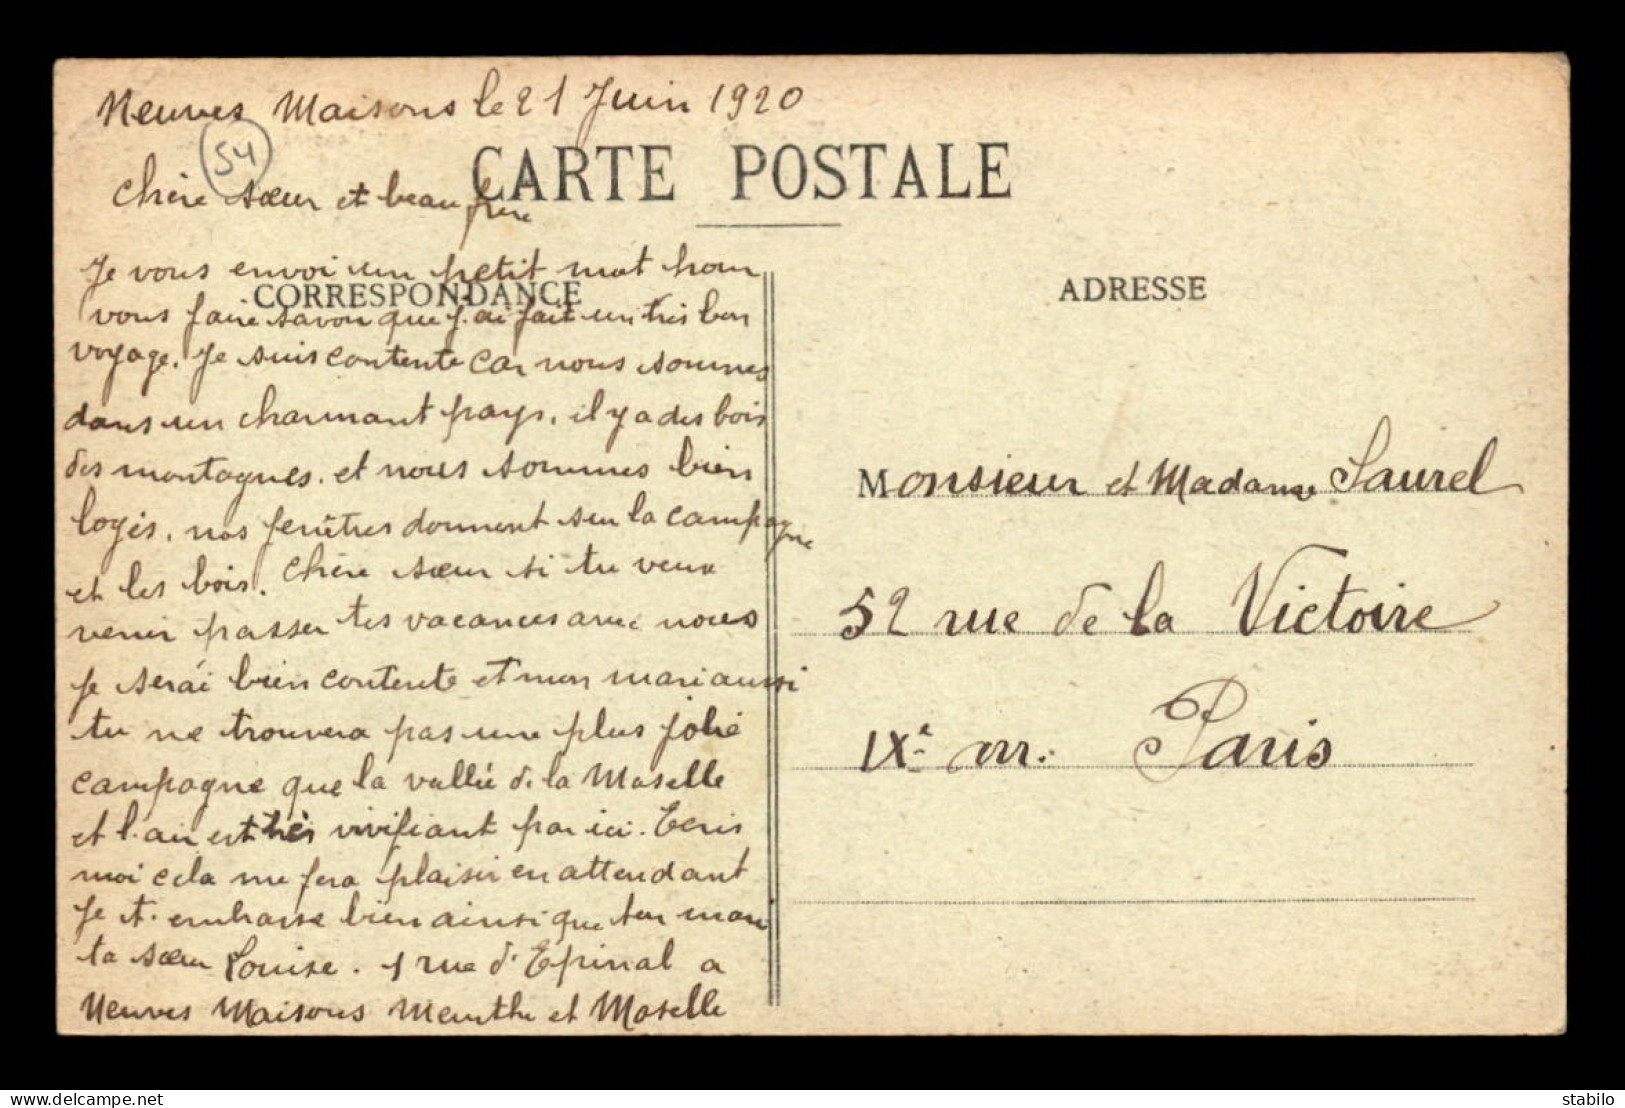 Neuves Maisons le 21 Juin 1920
54
CARTE POSTALE
Chère sœur et beau frère
Je vous envoi un petit mot pour
CORRESPONDANCE
vous faire savoir que j'ai fait un très bon
voyage. Je suis contente car nous sommes
dans un charmant pays, il y a des bois
des montagnes. et nous sommes bien
logés, nos fenêtres donnent sur la campagne
et les bois. Chère sœur si tu veux
venir passer tes vacances avec nous
je serai bien contente et mon mari aussi
tu ne trouvera pas une plus jolie
campagne que la vallée de la Moselle
et l'air est très vivifiant par ici. Ecris
moi cela me fera plaisir en attendant
Je t'embrasse bien ainsi que ton mari
ta sœur Louise. 1 rue d'Epinal a
Neuves Maisons Meurthe et Moselle
ADRESSE
Monsieur et Madame Saurel
52 rue de la Victoire
IXe arr: Paris
delcampe.net
stabilo